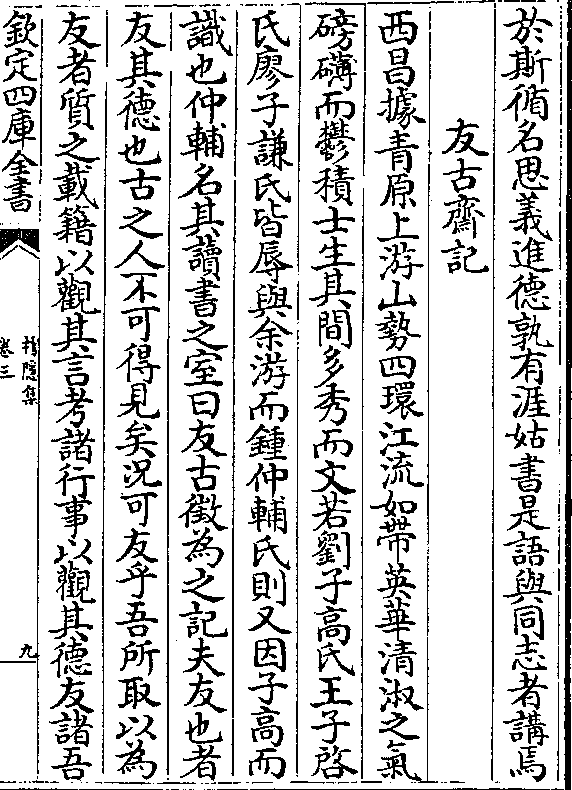 於斯循名思義進德孰有涯姑書是語與同志者講焉
友古齋記
西昌據青原上游山勢四環江流如帶英華清淑之氣
磅礴而鬱積士生其間多秀而文若劉子高氏王子啓
氏廖子謙氏皆辱與余游而鍾仲輔氏則又因子高而
識也仲輔名其讀書之室曰友古徵為之記夫友也者
友其德也古之人不可得見矣况可友乎吾所取以為
友者質之載籍以觀其言考諸行事以觀其德友諸吾
欽定四庫全書
隱集
卷三
九